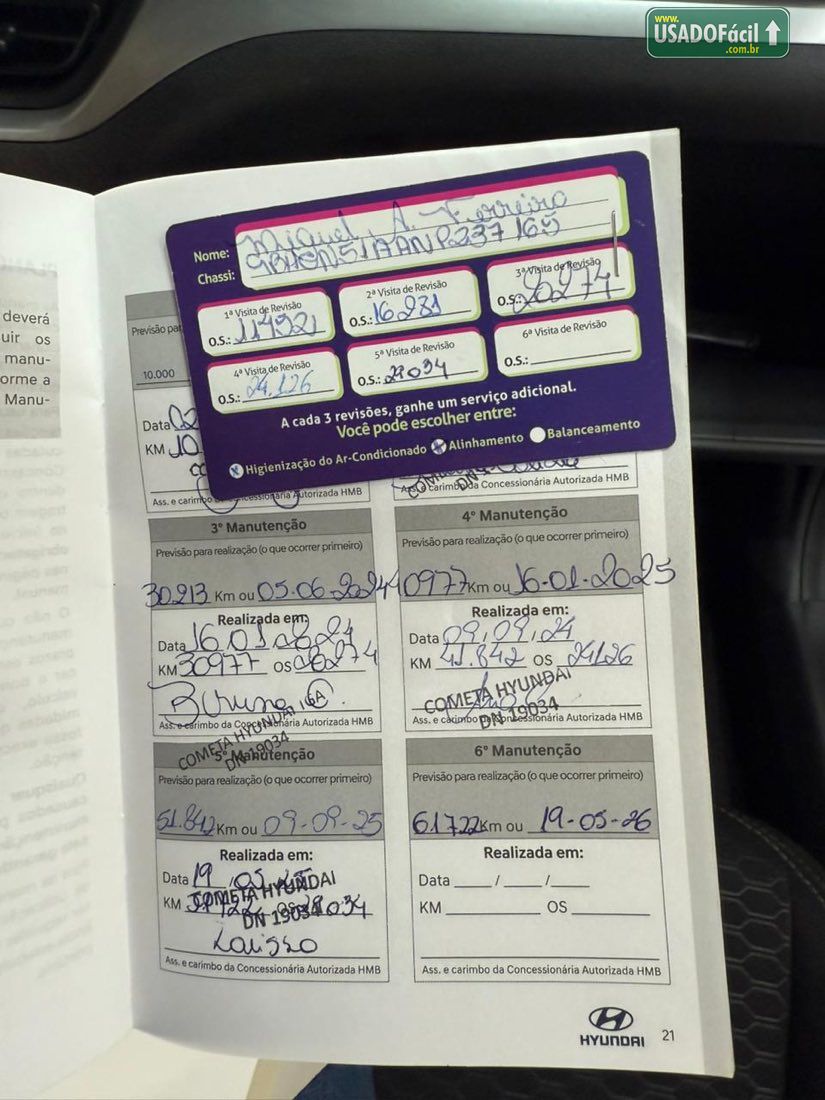 www.
USADOFácil
.com.br
deverá
uir os
manu-
orme a
Manu-
Nome: Miguel A. Ferreiro
Chassi:
1ª Visita de Revisão
O.S.: 114321
2ª Visita de Revisão
O.S.: 16 281
3ª Visita de Revisão
O.S.: 20274
4ª Visita de Revisão
O.S.: 24.126
5ª Visita de Revisão
O.S.: 29034
6ª Visita de Revisão
O.S.:
A cada 3 revisões, ganhe um serviço adicional.
Você pode escolher entre:
Higienização do Ar-Condicionado Alinhamento Balanceamento
Previsão par
10.000
Data 02
KM 10
Ass. e carimbo da Concessionária Autorizada HMB
Ass. e carimbo da Concessionária Autorizada HMB
3º Manutenção
Previsão para realização (o que ocorrer primeiro)
30213 Km ou 05.06.2024
Realizada em:
Data 16 01 2024
KM 30977 OS 20274
Bruna
Ass. e carimbo da Concessionária Autorizada HMB
COMETA HYUNDAI
DN 19034
4º Manutenção
Previsão para realização (o que ocorrer primeiro)
40977 Km ou 16-01-2025
Realizada em:
Data 09, 09, 24
KM 41.842 OS 24126
COMETA HYUNDAI
DN 19034
Ass. e carimbo da Concessionária Autorizada HMB
5º Manutenção
Previsão para realização (o que ocorrer primeiro)
51.842 Km ou 09-09-25
Realizada em:
Data 19 05
COMETA HYUNDAI
KM 51722 OS 29034
DN 19034
Larissa
Ass. e carimbo da Concessionária Autorizada HMB
6º Manutenção
Previsão para realização (o que ocorrer primeiro)
61722 Km ou 19-05-26
Realizada em:
Data ____/____/____
KM ________ OS ________
Ass. e carimbo da Concessionária Autorizada HMB
HYUNDAI
21